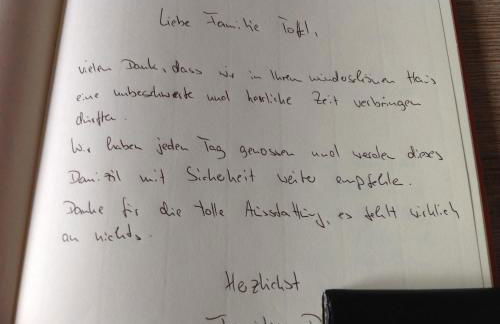 Liebe Familie Toffl,
vielen Dank, dass wir in Ihrem wunderschönen Haus
eine unbeschwerte und herrliche Zeit verbringen
durften.
Wir haben jeden Tag genossen und werden dieses
Domizil mit Sicherheit weiter empfehle.
Danke für die tolle Ausstattung, es fehlt wirklich
an nichts.
Herzlichst